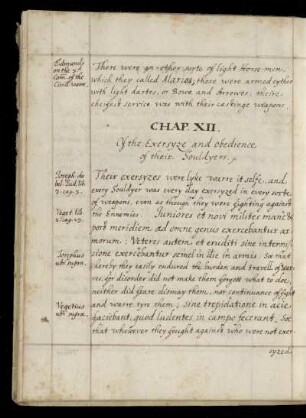 Edmonds
on the 7
Com. of the
Civil warre.
There were an other sorte of light Horse men,
which they called Alarios; these were armed eyther
with light dartes, or Bowe and Arrowes, theire
cheifest service was with their castinge weapons.
CHAP. XII.
Of the Exersyze and obedience
of their Souldyers.
Joseph. de
bel. Jud. lib
3. cap. 3.
Their exersyzes were lyke warre it selfe, and
every Souldyer was every day exersyzed in every sorte
of weapons, even as though they were fighting against
the Ennemies.
Veget. lib
2. cap. 23.
Juniores et novi milites mane &
post meridiem ad omne genus exercebantur ar-
morum: Veteres autem et eruditi sine intermis-
sione exercebantur semel in die in armis.
Josephus
ubi supra.
Soe that
thereby they easily endured the burden and travell of warre,
noe disorder did not make them forgett what to doe,
neither did feare dismay them, nor continuance of fight
and warre tyre them;
Vegetius
ubi supra.
sine trepidatione in acie
faciebant, quod ludentes in campo fecerant, Soe
that whosoever they fought against who were not exer-
syzed